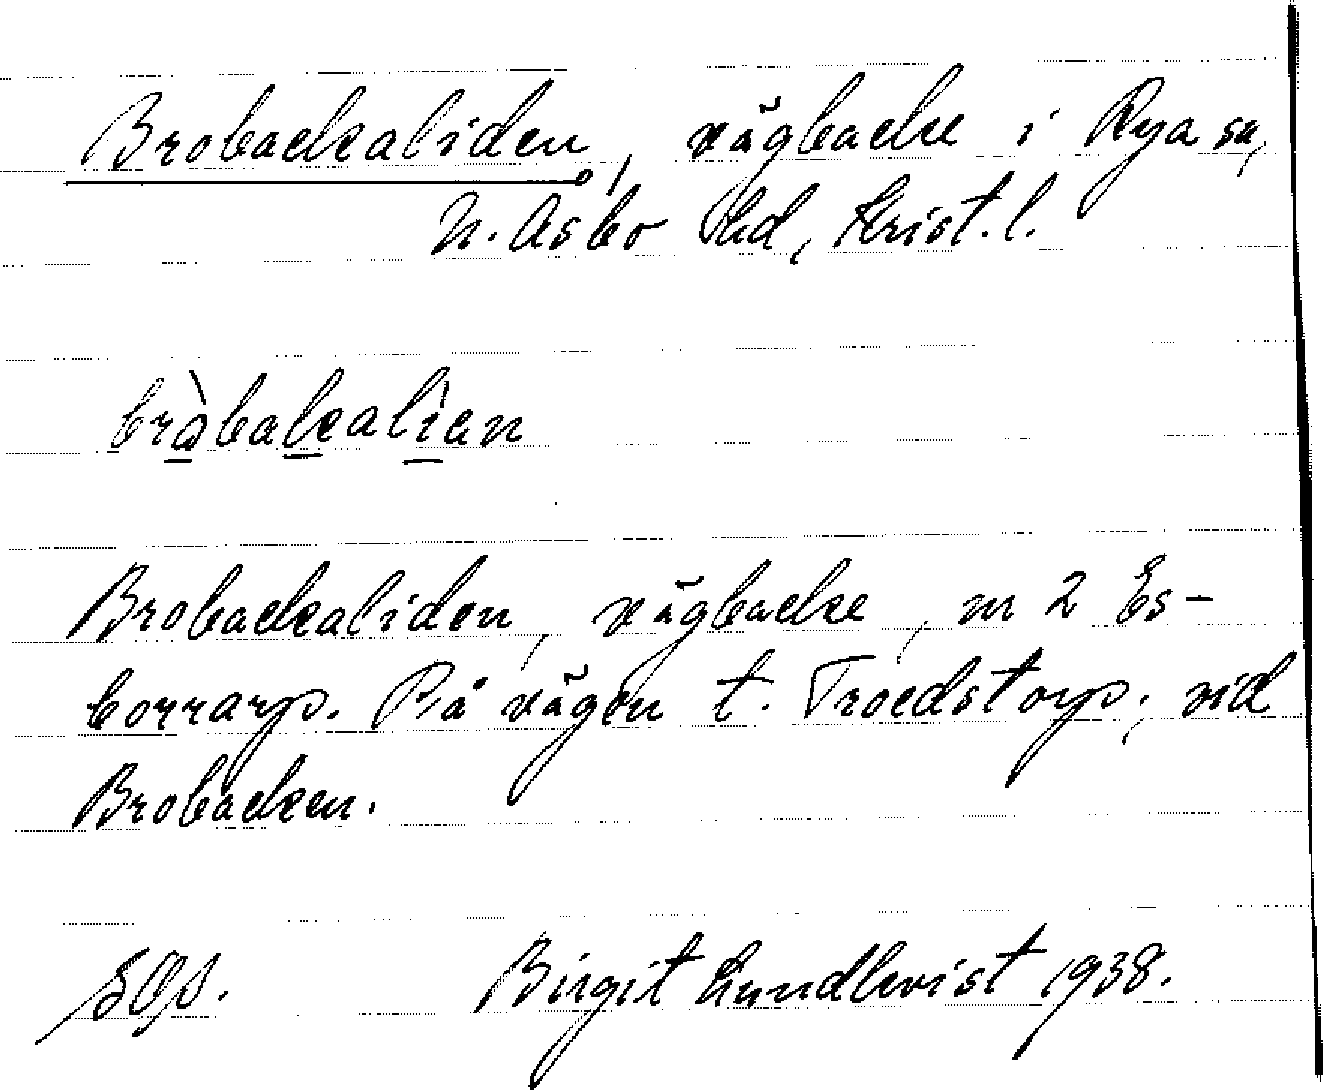 Brobackaliden, vägbacke i Rya sn,
N. Åsbo hd, Krist. l.
bròbakalìan
Brobackaliden, vägbacke, nr 2 Es-
borrarp. På vägen t. Troedstorp, vid
Brobacken.
Birgit Lundkvist 1938.